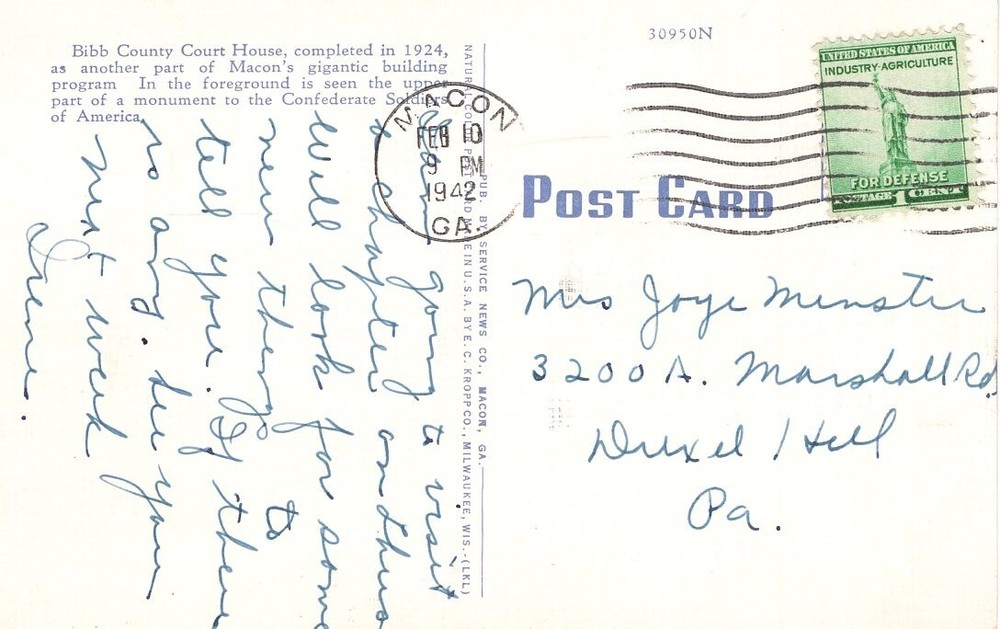 30950N
Bibb County Court House, completed in 1924,
as another part of Macon's gigantic building
program In the foreground is seen the upper
part of a monument to the Confederate Soldiers
of America.
MACON
FEB 10
9 PM
1942
GA.
UNITED STATES OF AMERICA
INDUSTRY·AGRICULTURE
FOR DEFENSE
POSTAGE 1 CENT
POST CARD
PUB. BY SERVICE NEWS CO., MACON, GA.
NATURAL COLOR POST CARD MADE IN U.S.A. BY E. C. KROPP CO., MILWAUKEE, WIS.-(LKL)
Mrs Joye Menster
3200 A. Marshall Rd
Drexel Hill
Pa.
going to visit
a chapter and thus
Will look for some
new things to
tell you. If there
is any. See you
next week
Irene.